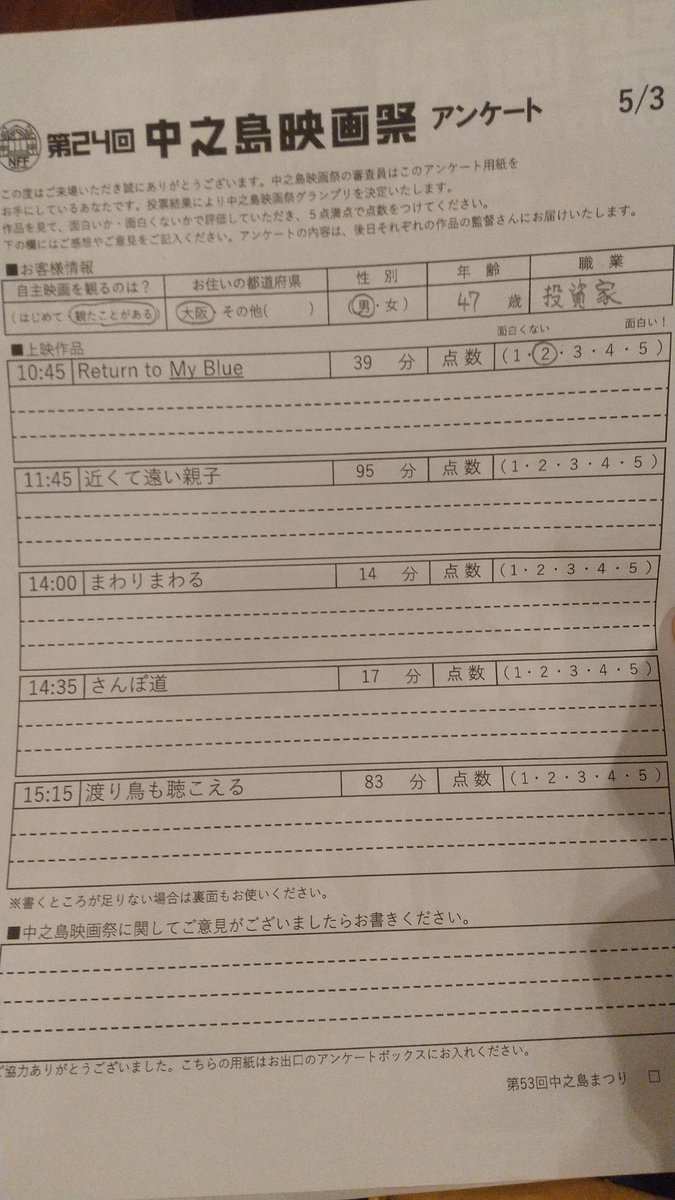 NFF 第24回 中之島映画祭 アンケート 5/3
この度はご来場いただき誠にありがとうございます。中之島映画祭の審査員はこのアンケート用紙を
お手にしているあなたです。投票結果により中之島映画祭グランプリを決定いたします。
作品を見て、面白いか・面白くないかで評価していただき、5点満点で点数をつけてください。
下の欄にはご感想やご意見をご記入ください。アンケートの内容は、後日それぞれの作品の監督さんにお届けいたします。
■お客様情報
自主映画を観るのは? お住いの都道府県 性別 年齢 職業
(はじめて・観たことがある) 大阪・その他( ) (男・女) 47 歳 投資家
■上映作品 面白くない 面白い!
10:45 Return to My Blue 39 分 点数 (1・2・3・4・5)
11:45 近くて遠い親子 95 分 点数 (1・2・3・4・5)
14:00 まわりまわる 14 分 点数 (1・2・3・4・5)
14:35 さんぽ道 17 分 点数 (1・2・3・4・5)
15:15 渡り鳥も聴こえる 83 分 点数 (1・2・3・4・5)
※書くところが足りない場合は裏面もお使いください。
■中之島映画祭に関してご意見がございましたらお書きください。
ご協力ありがとうございました。こちらの用紙はお出口のアンケートボックスにお入れください。
第53回中之島まつり □